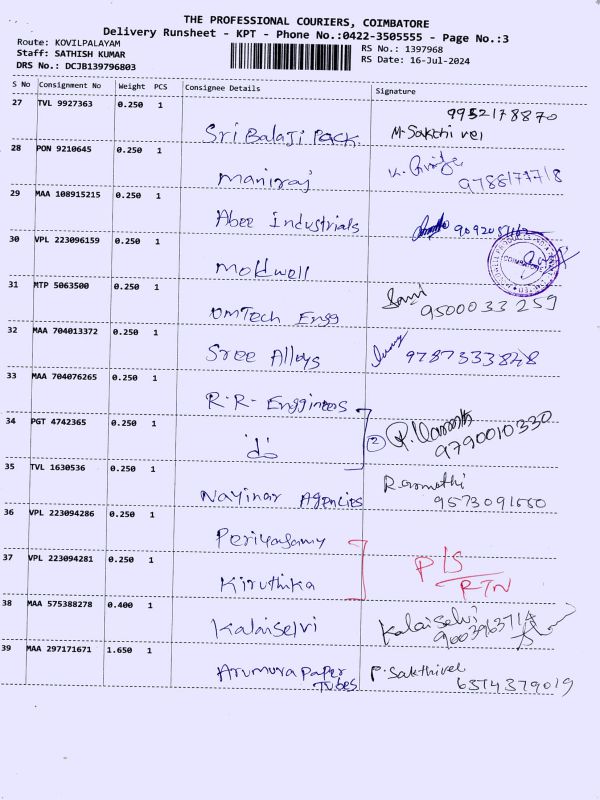 THE PROFESSIONAL COURIERS, COIMBATORE
Delivery Runsheet - KPT - Phone No.:0422-3505555 - Page No.:3
Route: KOVILPALAYAM
Staff: SATHISH KUMAR
DRS No.: DCJB139796803
RS No.: 1397968
RS Date: 16-Jul-2024
S No Consignment No Weight PCS Consignee Details Signature
27 TVL 9927363 0.250 1
Sri Balaji Pack. 9952178870
M. Sakthi vel
28 PON 9210645 0.250 1
Maniraj
29 MAA 108915215 0.250 1
Abee Industrials
30 VPL 223096159 0.250 1
Moldwell COIMBATORE
31 MTP 5063500 0.250 1
OmTech Engg 9500033259
32 MAA 704013372 0.250 1
Sree Alloys 9787333848
33 MAA 704076265 0.250 1
R.R- Enggineers
34 PGT 4742365 0.250 1
do 2 9790010330
35 TVL 1630536 0.250 1
Nayinar Agencies
36 VPL 223094286 0.250 1
Periyasamy
37 VPL 223094281 0.250 1
Kiruthika P/S
RTN
38 MAA 575388278 0.400 1
Kalaiselvi Kalaiselvi
39 MAA 297171671 1.650 1
Arumura Paper Tubes P. Sakthivel
6374379019